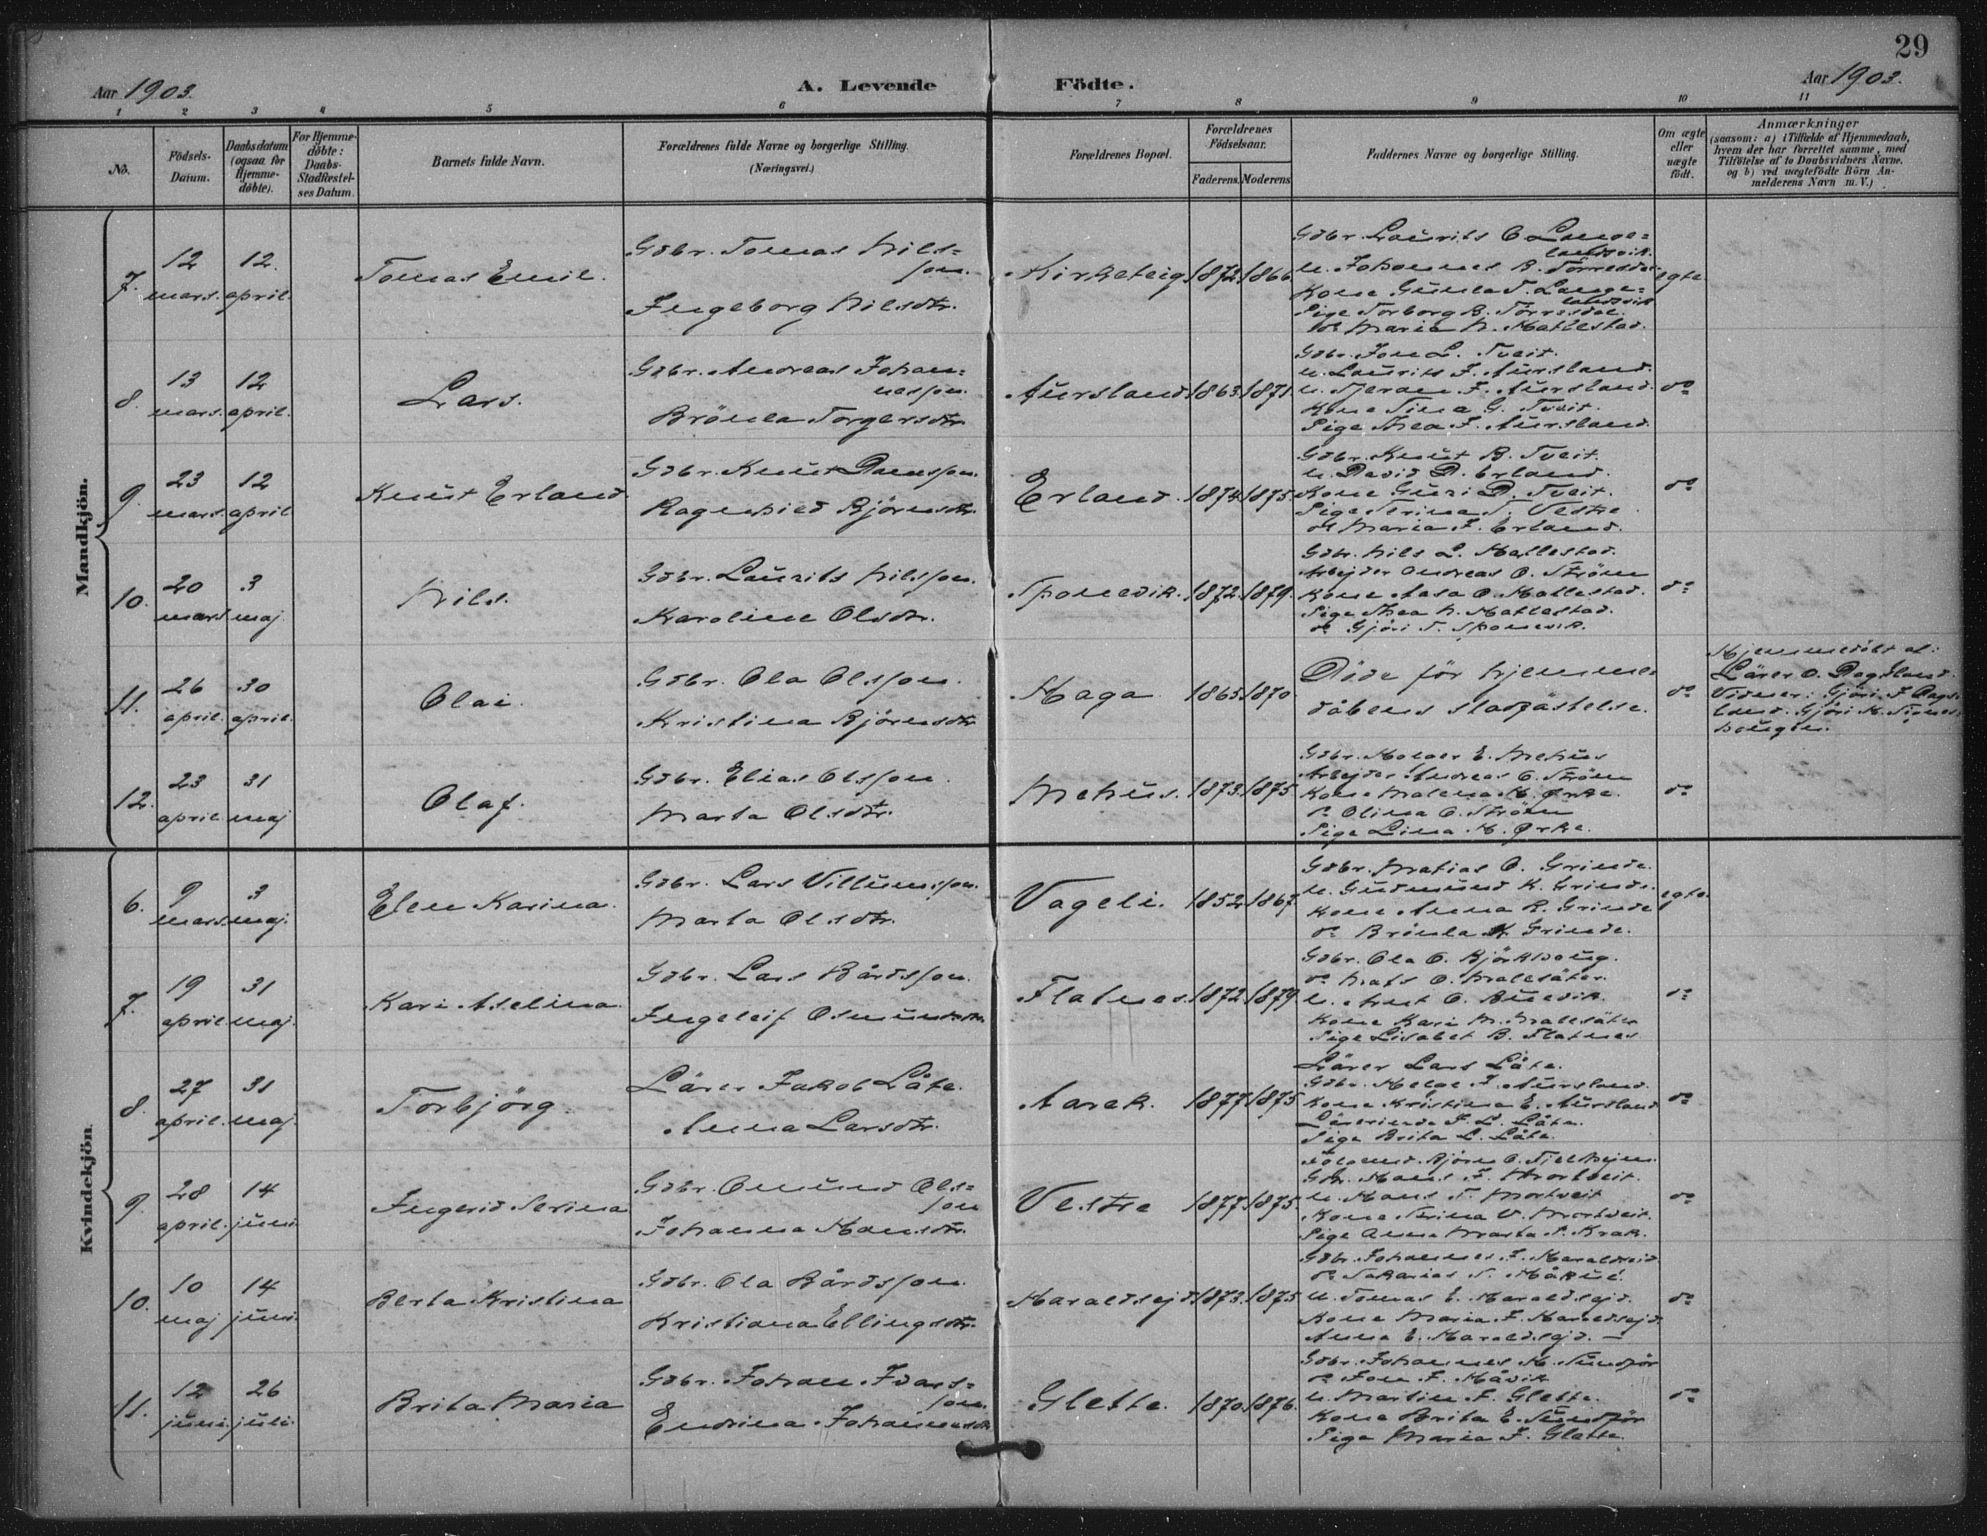 29
Aar 1903. A. Levende Födte. Aar 1903.
1 2 3 4 5 6 7 8 9 10 11
No.
Födsels-Datum.
Daabsdatum (ogsaa for Hjemme-döbte).
For Hjemme-döbte: Daabs-Stadfæstel-ses Datum.
Barnets fulde Navn.
Forældrenes fulde Navne og borgerlige Stilling.
(Næringsvei.)
Forældrenes Bopæl.
Forældrenes Födselsaar.
Faderens. Moderens
Faddernes Navne og borgerlige Stilling.
Om ægte eller uægte födt.
Anmærkninger
(saasom: a) i Tilfælde af Hjemmedaab,
hvem der har forrettet samme, med
Tilföielse af to Daabsvidners Navne.
og b) ved uægtefödte Börn An-
melderens Navn m. V.)
Mandkjön.
7. 12 mars. 12. april. Tomas Emil.
Gdbr. Tomas Nils=
son.
Ingeborg Nilsdtr.
Kirketeig 1872. 1866
Gdbr. Laurits O. Lange=
landsvik.
U. Johannes B. Törresdal
Kone Gunla T. Lange=
landsvik
Pige Torborg B. Törresdal.
do Maria N. Hatlestad.
egte
8. 13 mars. 12 april. Lars.
Gdbr. Andreas Johan=
nesson.
Brönla Torgersdtr.
Aursland. 1863. 1871.
Gdbr. Jon L. Tveit.
U. Laurits J. Aursland.
U. J. Aursland.
Kone Sina G. Tveit.
Pige Thea J. Aursland.
do
9. 23 mars. 12 april Knut Erland.
Gdbr. Knut Dausson.
Ragnhild Björnsdtr.
Erland. 1874. 1875.
Gdbr. Knut B. Tveit.
U. David D. Erland.
Kone Guri D. Tveit.
Pige Serina S. Vestre.
do Maria J. Erland.
do
10. 20 mars 3 maj. Nils.
Gdbr. Laurits Nilsson.
Karoline Olsdtr.
Sponevik. 1872. 1879.
Gdbr. Nils L. Hatlestad.
Arbejder Andreas O. Ström
Kone Aasa O. Hatlestad.
Pige Thea N. Hatlestad.
do Gjöri T. Sponevik.
do
11. 26 april. 30 april. Olai.
Gdbr. Ola Olsson.
Kristina Björnsdtr.
Haga. 1865. 1870
Döde för hjemme=
dåbens stadfästelse.
do
Hjemmedöbt af:
Lärer O. Dagsland.
Vidner: Gjöri J. Dags=
land. Gjöri H.
12. 23 april. 31 maj Olaf.
Gdbr. Elias Olsson.
Marta Olsdtr.
Mehus. 1873. 1875.
Gdbr. Holger E. Mehus
Arbejder Andreas O. Ström
Kone Malena H. Ørke.
do Olina O. Ström
Pige Lina H. Ørke.
do
Kvindekjön.
6. 9 mars. 3 maj. Elen Karina.
Gdbr. Lars Villumsson.
Marta Olsdtr.
Vageli. 1852. 1867.
Gdbr. Matias O. Grinde.
U. Gudmund K. Grinde.
Kone Anna R. Grinde
do Brönla K. Grinde.
egte.
7. 19 april. 31 maj. Kari Aselina.
Gdbr. Lars Bårdsson.
Ingeleif Osmundsdtr.
Flatnes. 1872. 1879.
Gdbr. Ola O. Björkhoug.
do Mats O. Malesäter.
U. Anut O. Aunevik.
Kone Kari M. Malesäter
Pige Lisabet B. Flatnes.
do
8. 27 april. 31 maj. Torbjörg.
Lärer Jakob Låte.
Anna Larsdtr.
Aarek. 1877. 1875.
Lärer Lars Låte.
Gdbr. Helge J. Aursland.
Kone Kristina E. Aursland
Lärerinde J. L. Låte.
Pige Brita L. Låte.
do
9. 28 april. 14 juni. Ingerid Serina
Gdbr. Omund Ols=
son
Johanna Hansdtr.
Vestre 1877. 1875.
Gdr. Hans J. Mortveit.
U. Hans T. Mortveit
Kone Serina V. Mortveit.
Pige Anna Marta P. Krak.
do
10. 10 maj 14 juni. Berta Kristina
Gdbr. Ola Bårdsson.
Kristiana Ellingsdtr.
Haraldsejd. 1873. 1875
Gdbr. Johannes J. Haraldseid
do Sakarias S. Måkul.
U. Tomas E. Haraldsejd.
Kone Maria J. Haraldsejd
Anna E. Haraldsejd. —
do
11. 12 juni. 26 juli. Brita Maria
Gdbr. Johan Ivars=
son.
Endrina Johannesdtr.
Glette. 1870. 1876.
Gdbr. Johannes H. Sundför
do Jon J. Håvik
U. Martin J. Glette.
Kone Brita E. Sundför
Pige Maria J. Glette.
do